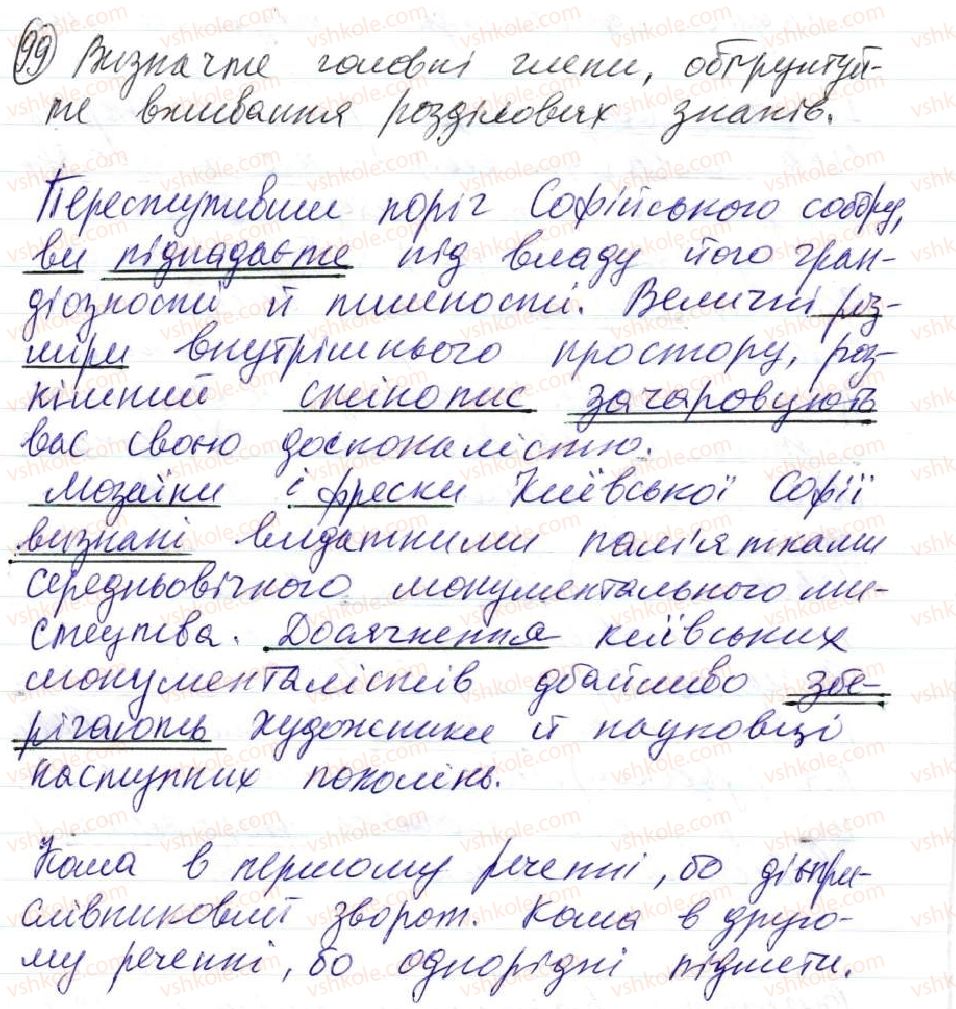 99 Визначте головні члени, обґрунтуй-
те вживання розділових знаків.
Переступивши поріг Софійського собору,
ви підпадаєте під владу його гран-
діозності й пишності. Величні роз-
міри внутрішнього простору, роз-
кішний стінопис зачаровують
вас своєю досконалістю.
Мозаїки і фрески Київської Софії
визнані видатними пам'ятками
середньовічного монументального ми-
стецтва. Досягнення київських
монументалістів дбайливо збе-
рігають художники й науковці
наступних поколінь.
Кома в першому реченні, бо дієпри-
слівниковий зворот. Кома в друго-
му реченні, бо однорідні підмети.
vshkole.com